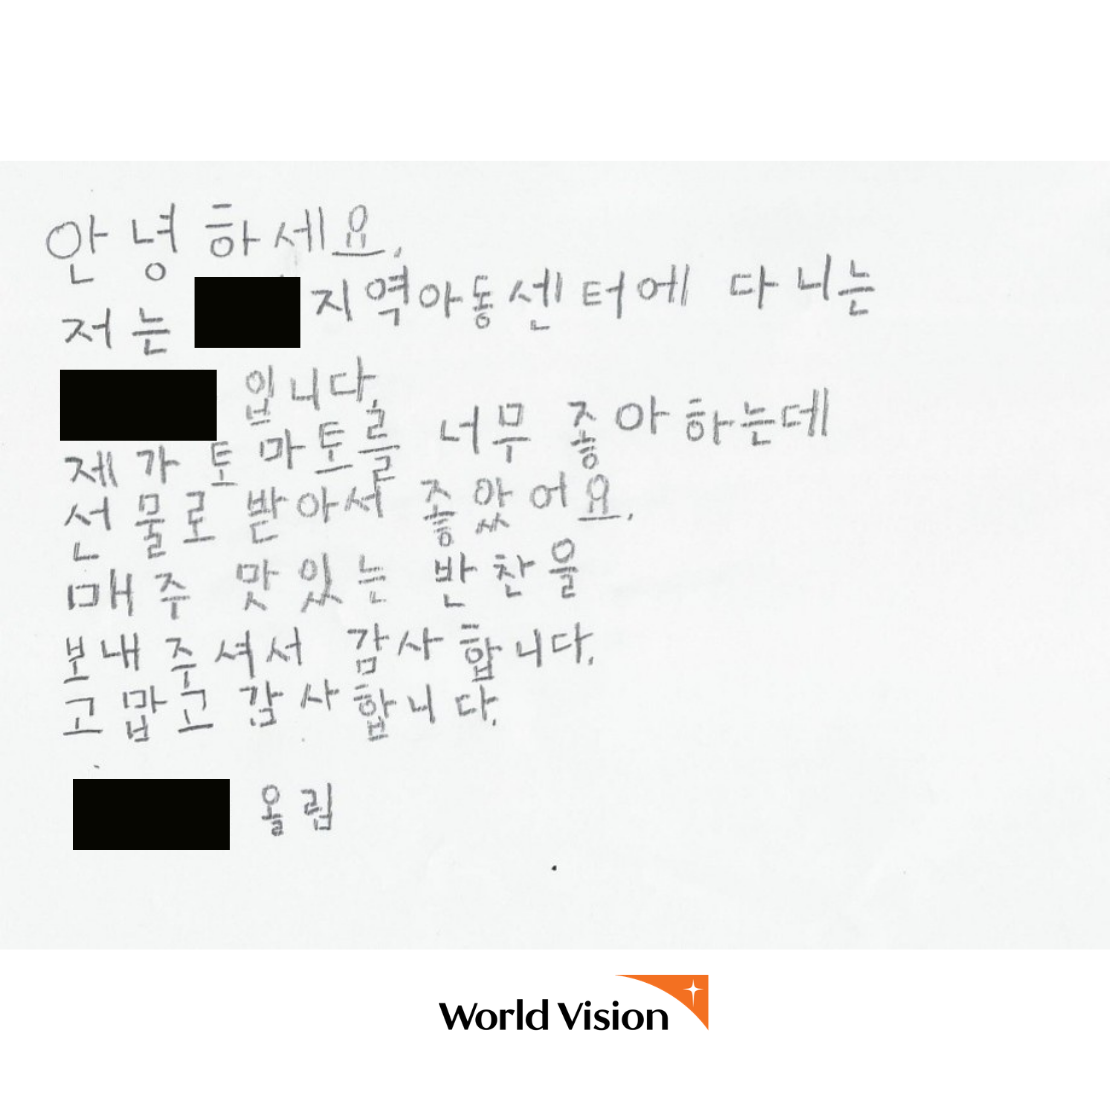 안녕하세요.
저는 지역아동센터에 다니는
입니다.
제가 토마토를 너무 좋아하는데
선물로 받아서 좋았어요.
매주 맛있는 반찬을
보내주셔서 감사합니다.
고맙고 감사합니다.
올림
World Vision